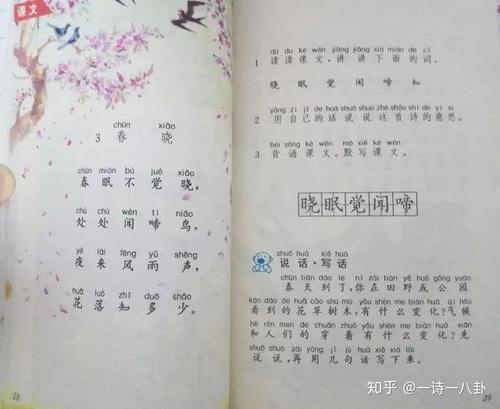 课文
chūn xiǎo
3 春 晓
chūn mián bù jué xiǎo
春 眠 不 觉 晓，
chù chù wén tí niǎo
处 处 闻 啼 鸟。
yè lái fēng yǔ shēng
夜 来 风 雨 声，
huā luò zhī duō shǎo
花 落 知 多 少。
28
dú du kè wén jiǎng jiang xià miàn de cí
1 读读课文，讲讲下面的词。
晓 眠 觉 闻 啼 知
yòng zì jǐ de huà shuō shuo zhè shǒu shī de yì si
2 用自己的话说说这首诗的意思。
bèi sòng kè wén mò xiě kè wén
3 背诵课文。默写课文。
晓眠觉闻啼
shuō huà xiě huà
说话·写话
chūn tiān dào le nǐ zài tián yě huò gōng yuán
春天到了，你在田野或公园
kàn dào de huā cǎo shù mù yǒu shén me biàn huà qì hòu
看到的花草树木，有什么变化？气候
hé rén men de chuān zhuó yǒu shén me biàn huà xiān
和人们的穿着有什么变化？先
shuō shuo zài yòng jǐ jù huà xiě xià lái
说说，再用几句话写下来。
29
知乎 @一诗一八卦